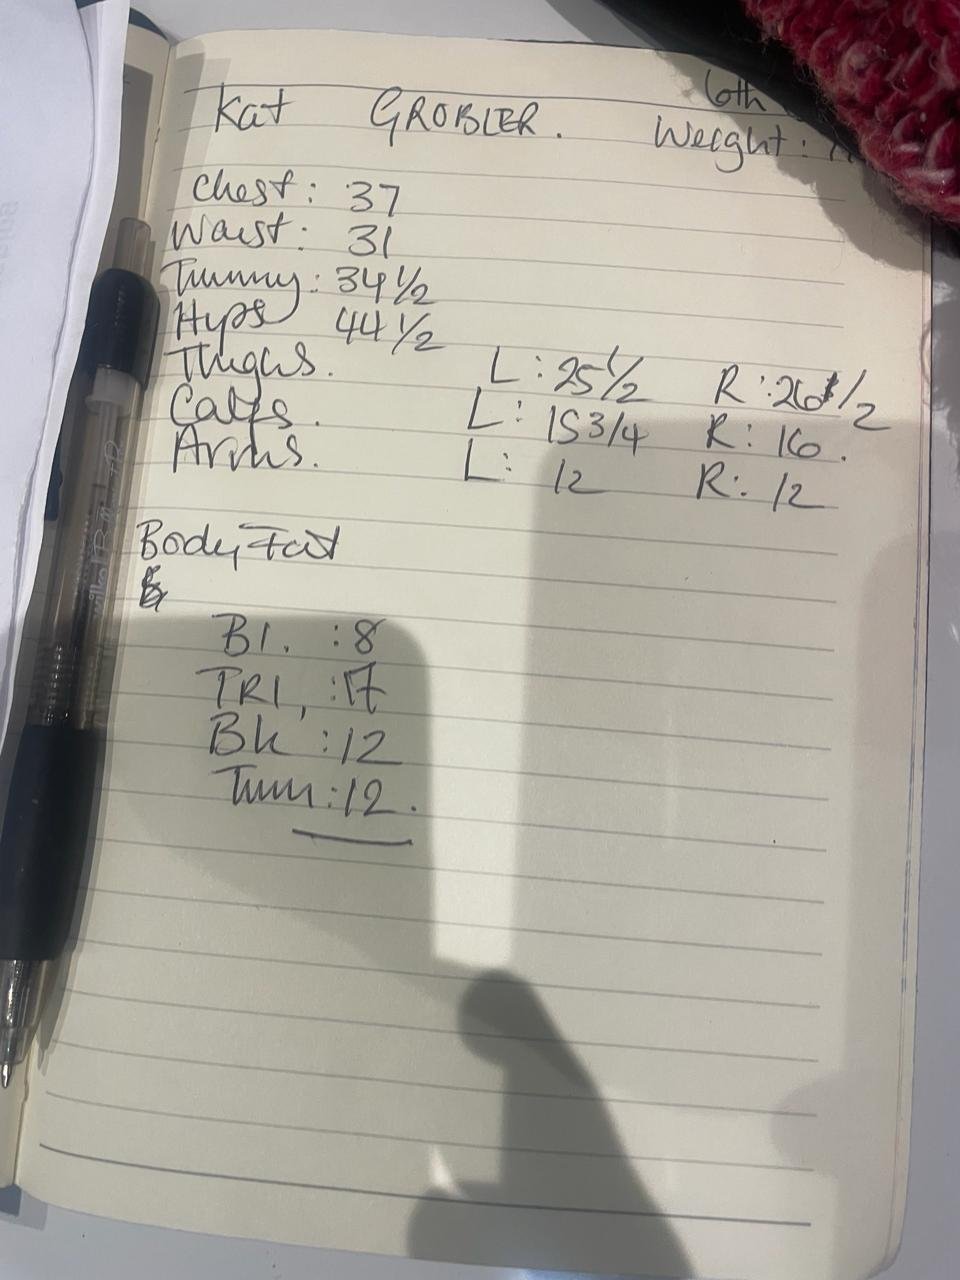 6th
Kat GROBLER. Weight:
Chest: 37
Waist: 31
Tummy: 34 1/2
Hyps 44 1/2
Thighs. L: 25 1/2 R: 26 1/2
Calfs. L: 15 3/4 R: 16.
Arms. L: 12 R: 12
Body Fat
BI. :8
TRI, :17
Bk :12
Tum:12.